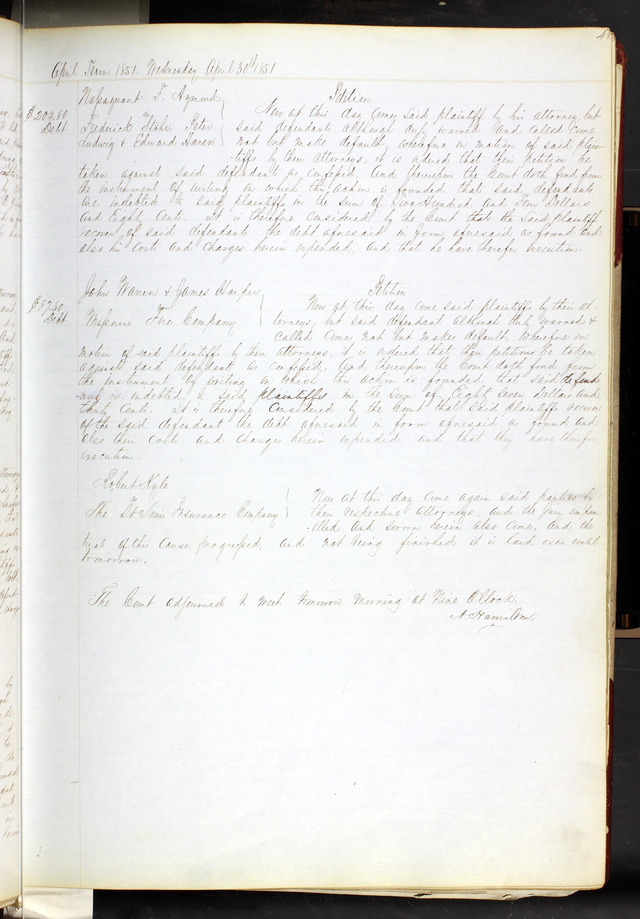 April Term 1851. Wednesday April 30th 1851
F. Petition
$204.80 Now at this day comes said plaintiff by his attorney, but
Debt Frederick Peter said defendants although duly warned and called come
Ludwig & Edward Haren not but make default, wherefore on motion of said plain-
tiffs by their attorneys, it is ordered that their petition be
taken against said defendants as confessed, And thereupon the Court doth find from
the instrument of writing on which this action is founded that said defendants
are indebted to said plaintiffs in the sum of Two Hundred and Four Dollars
and Eighty Cents. It is therefore considered by the Court that the said plaintiff
recover of said defendants the debt aforesaid in form aforesaid as found and
also his costs and charges herein expended, and that he have therefor execution.
John Warren & James Harper Petition
$87.30 Now at this day come said plaintiffs by their at-
Debt Missouri Fire Company torneys, but said defendant although duly warned &
called comes not but makes default. Wherefore on
motion of said plaintiffs by their attorneys, it is ordered that their petition be taken
against said defendant as confessed, And thereupon the Court doth find from
the instrument of writing on which this action is founded that said defend-
ant is indebted to said plaintiffs in the sum of Eighty Seven Dollars and
thirty Cents. It is therefore Considered by the Court that said plaintiffs recover
of the said defendant the debt aforesaid in form aforesaid as found and
also their costs and charges herein expended and that they have therefor
execution.
Robert Kyle
Now at this day come again said parties by
The St Louis Insurance Company their respective attorneys, and the jury empan-
elled and sworn herein also come, and the
trial of this cause progressed, and not being finished it is laid over until
tomorrow.
The Court adjourned to meet tomorrow morning at Nine O'Clock.
A. Hamilton.